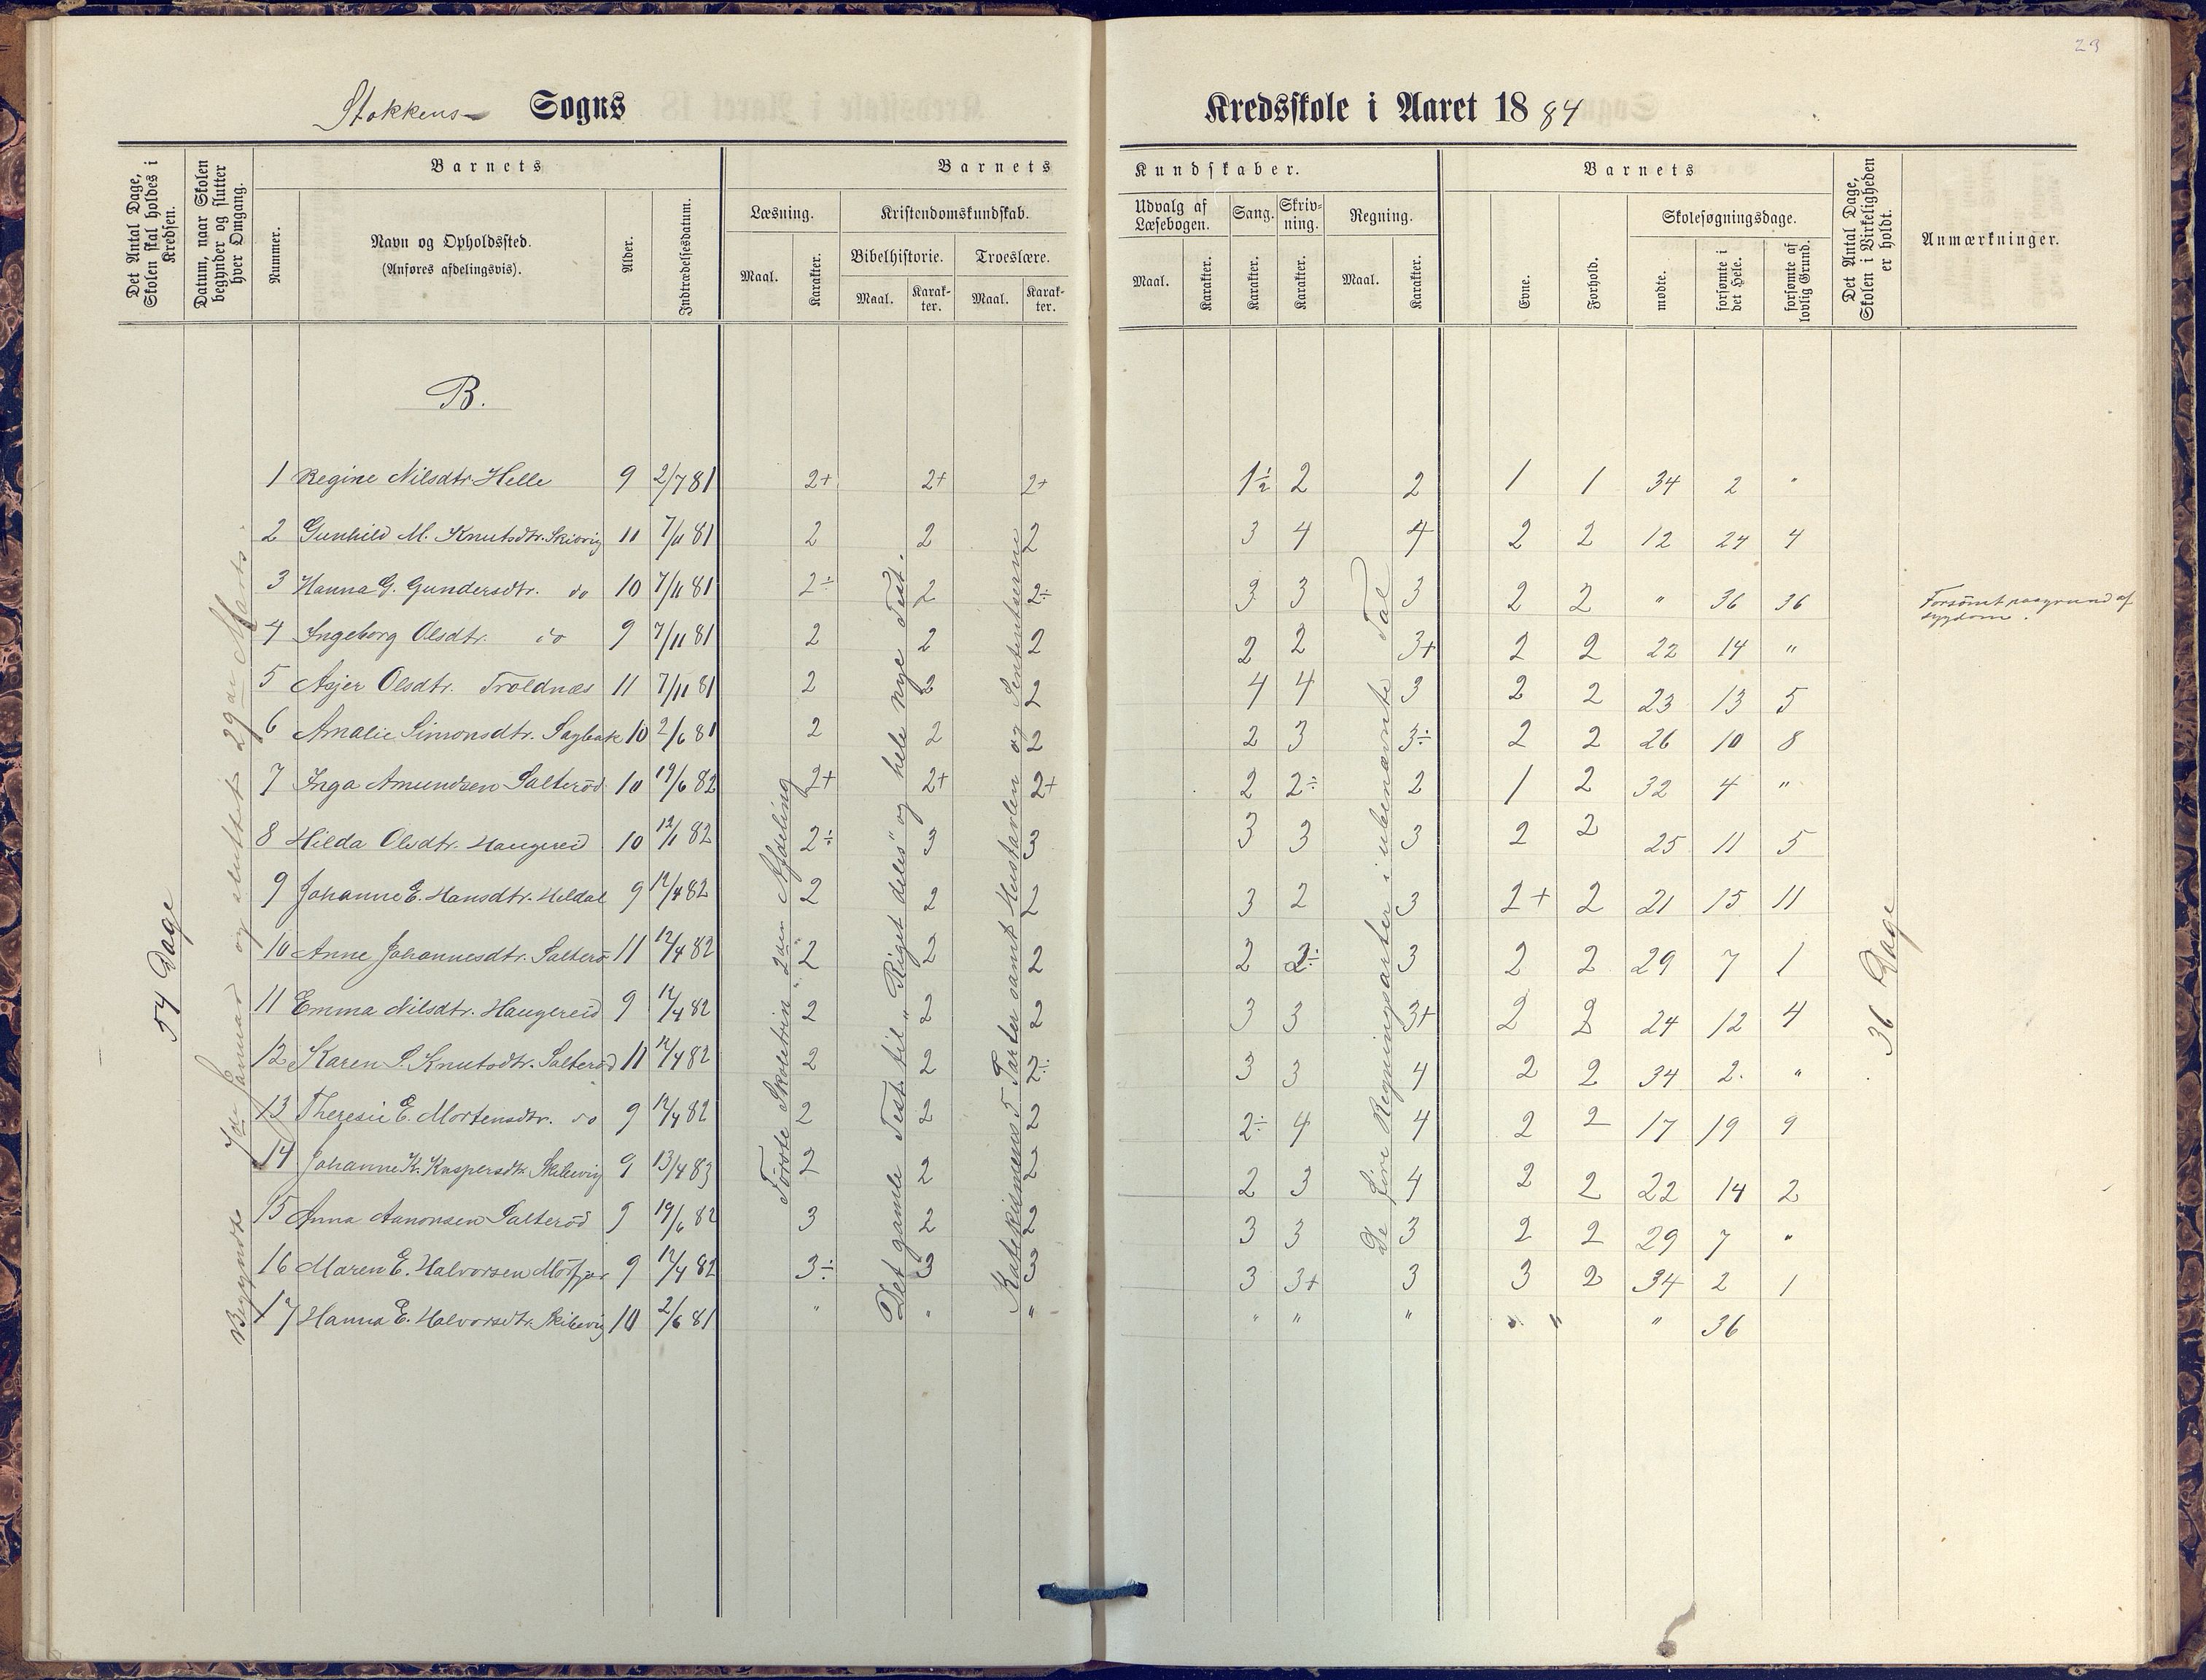 23
Stokkens Sogns Kredsskole i Aaret 1884
Det Antal Dage, Skolen skal holdes i Kredsen.
Datum, naar Skolen begynder og slutter hver Omgang.
Barnets
Nummer.
Navn og Opholdssted.
(Anføres afdelingsvis).
Alder.
Indtrædelsesdatum.
Barnets Kundskaber.
Læsning.
Maal.
Karakter.
Kristendomskundskab.
Bibelhistorie.
Maal.
Karakter.
Troeslære.
Maal.
Karakter.
Udvalg af Læsebogen.
Maal.
Karakter.
Sang.
Karakter.
Skrivning.
Karakter.
Regning.
Maal.
Karakter.
Barnets
Evne.
Forhold.
Skolesøgningsdage.
mødte.
forsømte i det Hele.
forsømte af lovlig Grund.
Det Antal Dage, Skolen i Virkeligheden er holdt.
Anmærkninger.
B.
54 Dage
Begyndte 7de Januar og sluttet 29de Marts.
Første Skoletrin "2den Afdeling
Det gamle Test. til "Riget deles" og hele nye Test.
Katekismens 5 Parter samt Hustavlen og Sententserne
De fire Regningsarter i ubenævnte Tal
36 Dage
1 Regine Nilsdtr. Helle 9 2/7 81 2+ 2+ 2+ 1½ 2 2 1 1 34 2 "
2 Gunhild M. Knutsdtr. Skibvig 11 7/11 81 2 2 2 3 4 4 2 2 12 24 4
3 Hanna G. Gundersdtr. do 10 7/11 81 2÷ 2 2÷ 3 3 3 2 2 " 36 36 Forsömt paagrund af sygdom.
4 Ingeborg Olsdtr. do 9 7/11 81 2 2 2 2 2 3+ 2 2 22 14 "
5 Asjer Olsdtr. Troldnæs 11 7/11 81 2 2 2 4 4 3 2 2 23 13 5
6 Amalie Simonsdtr. Sagbak 10 2/6 81 2 2 2 2 3 3÷ 2 2 26 10 8
7 Inga Amundsen Salteröd 10 19/6 82 2+ 2+ 2+ 2 2÷ 2 1 2 32 4 "
8 Hilda Olsdtr. Haugereid 10 12/1 82 2÷ 3 3 3 3 3 2 2 25 11 5
9 Johanne E. Hansdtr. Heldal 9 12/4 82 2 2 2 3 2 3 2+ 2 21 15 11
10 Anne Johannesdtr. Salterö 11 12/4 82 2 2 2 2 2÷ 3 2 2 29 7 1
11 Emma Nilsdtr. Haugereid 9 12/4 82 2 2 2 3 3 3+ 2 2 24 12 4
12 Karen S. Knutsdtr. Salteröd 11 12/4 82 2 2 2÷ 3 3 4 2 2 34 2. "
13 Theresie E. Mortensdtr. do 9 12/4 82 2 2 2 2÷ 4 4 2 2 17 19 9
14 Johanne K. Kaspersdtr. Skibevig 9 13/4 83 2 2 2 2 3 4 2 2 22 14 2
15 Anna Aanonsen Salteröd 9 19/6 82 3 2 2 3 3 3 2 2 29 7 "
16 Maren E. Halvorsen Mörfjær 9 12/4 82 3÷ 3 3 3 3+ 3 3 2 34 2 1
17 Hanna E. Halvorsdtr. Skibevig 10 2/6 81 " " " " " " " " " 36